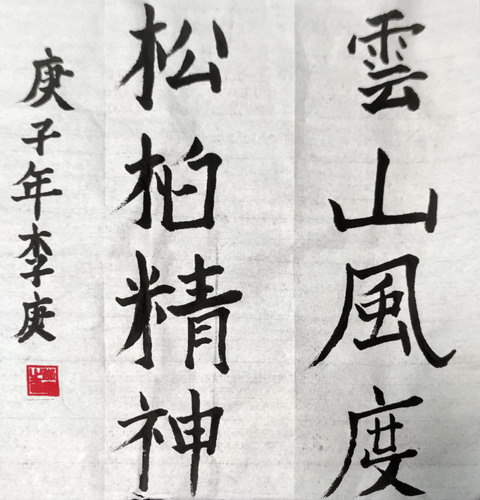 雲山風度
松柏精神
庚子年李庚